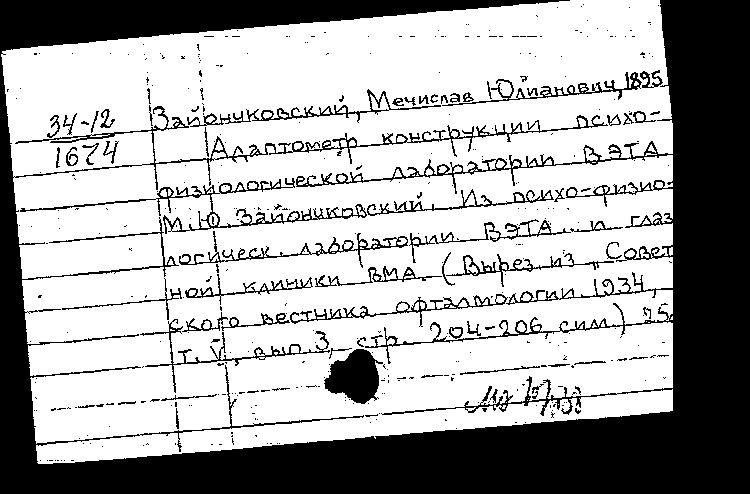 34-12
1674
Зайончковский, Мечислав Юлианович, 1895
Адаптометр конструкции психо-
физиологической лаборатории ВЭТА
М.Ю. Зайончковский. Из психо-физио-
логическ. лаборатории ВЭТА и глаз
ной клиники ВМА. (Вырез. из „Совет
ского вестника офталмологии. 1934,
т. V, вып. 3, стр. 204-206, сим.) 25